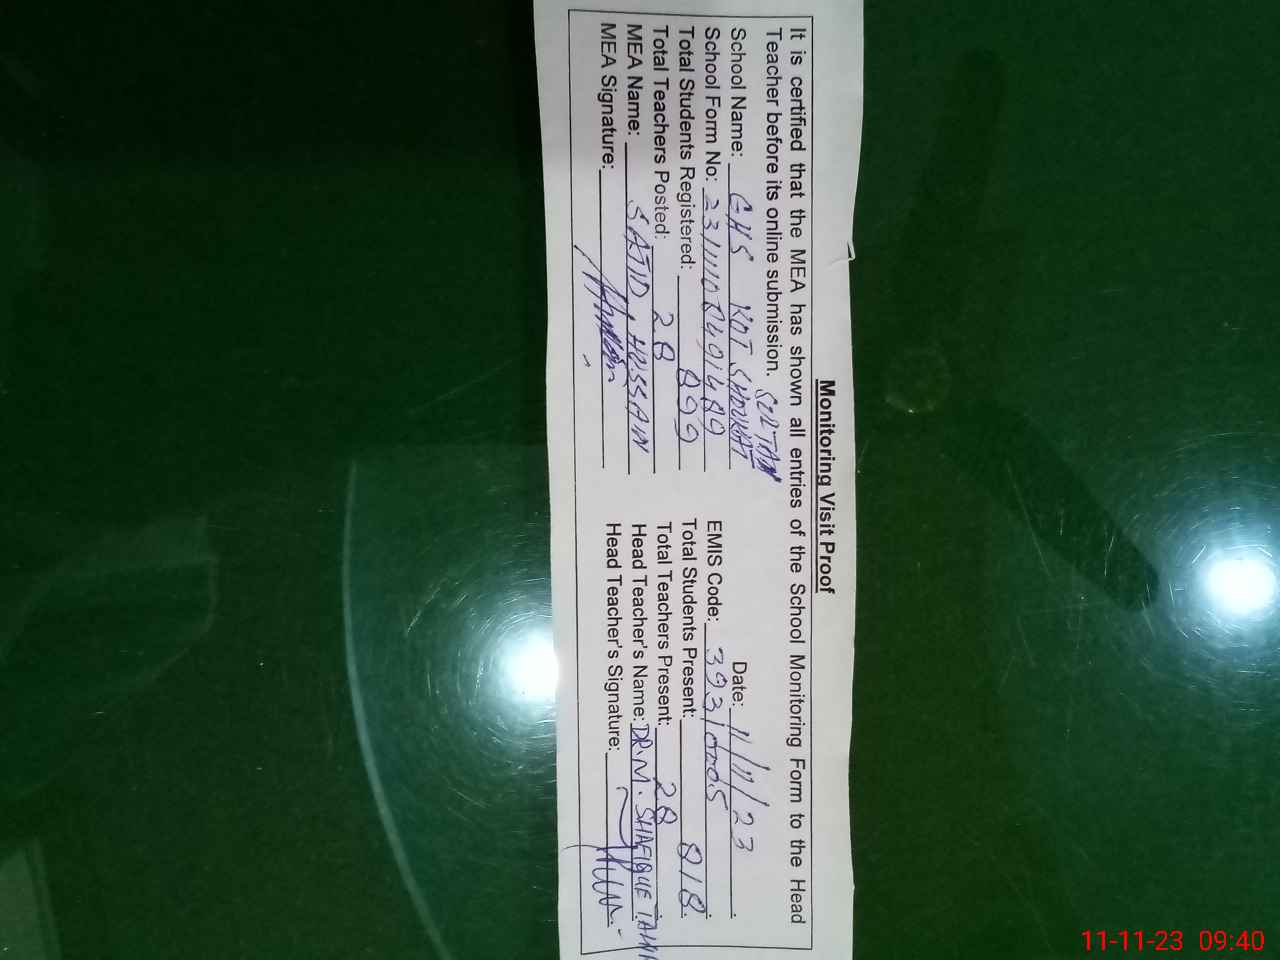 Monitoring Visit Proof
It is certified that the MEA has shown all entries of the School Monitoring Form to the Head
Teacher before its online submission.
SULTAN
School Name: GHS KOT SHOUKAT Date: 11/11/23
School Form No: EMIS Code:
Total Students Registered: 899 Total Students Present: 818
Total Teachers Posted: 28 Total Teachers Present: 28
MEA Name: SAJID HUSSAIN Head Teacher's Name: DR. M. SHAFIQUE
MEA Signature: Head Teacher's Signature:
11-11-23 09:40